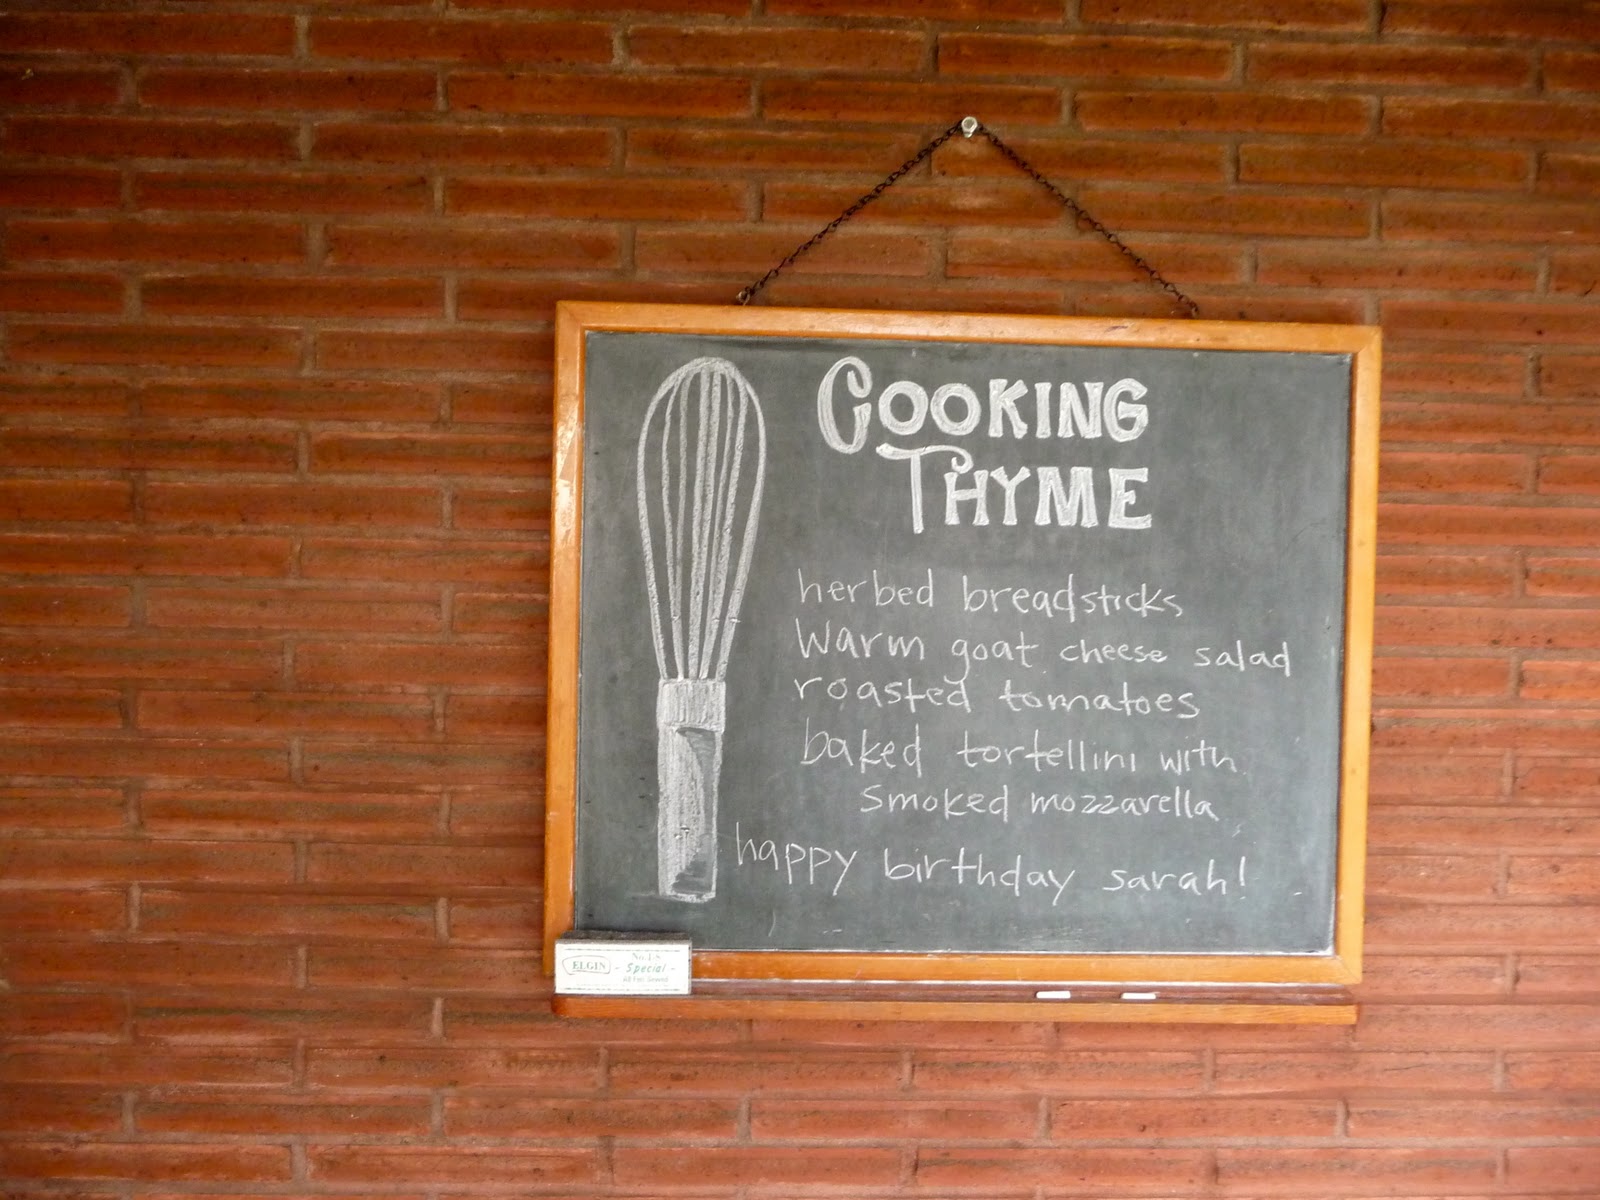 COOKING
THYME
herbed breadsticks
warm goat cheese salad
roasted tomatoes
baked tortellini with
smoked mozzarella
happy birthday sarah!
ELGIN
- Special -